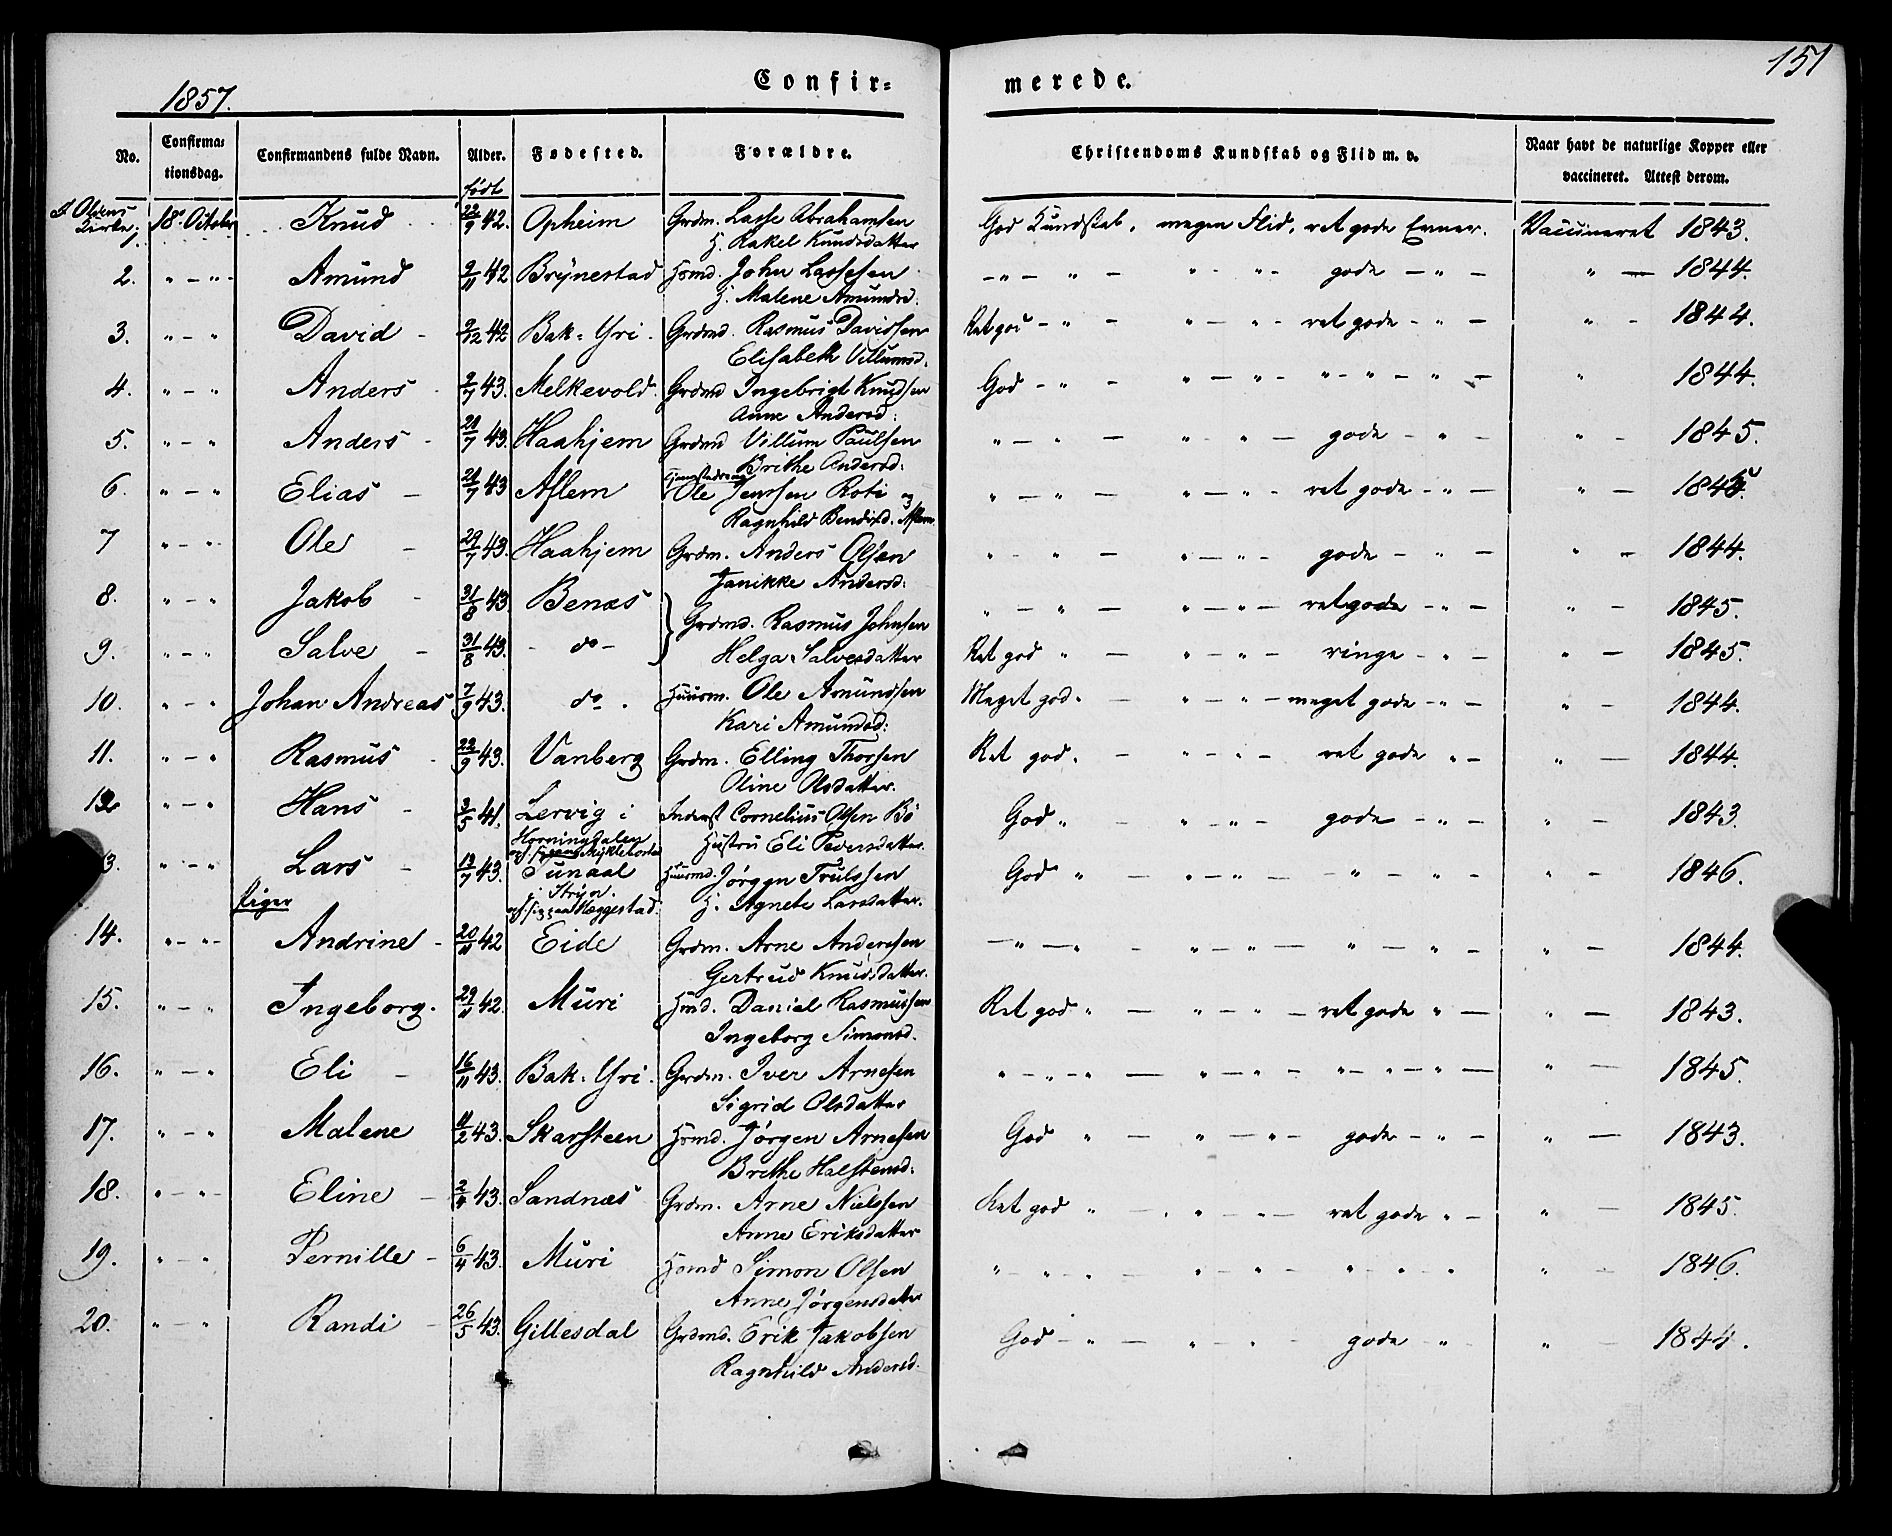 1857. Confir= merede. 151
No. Confirma= tionsdag. Confirmandens fulde Navn. Alder. Fødested. Forældre. Christendoms Kundskab og Flid m. v. Naar havt de naturlige Kopper eller vaccineret. Attest derom.
født
I Oldens Kirke
1. 18. October Knud 22/9 42. Opheim Grdm. Lasse Abrahamsen God Kundskab, megen Flid, ret gode Evner. Vaccineret 1843.
H. Rakel Knudsdatter
2. " - " - Amund 9/11 42 Brynestad Hsmd. John Lassesen - " - " - " - " - gode - " - " - 1844.
H. Malene Amundsd.
3. " - " David - 9/12 42 Bak=Yri. Grdmd. Rasmus Davidsen Ret god - " - " - " - ret gode - " - " - 1844.
Elisabeth Villumsd.
4. " - " Anders 9/7 43. Melkevold. Grdmd Ingebrigt Knudsen God - " - " - " - " - " - " - " 1844.
Anne Andersd:
5. " - " Anders - 21/7 43. Haahjem Grdmd Villum Paulsen " - " - " - " - gode - " - " - 1845.
Brithe Andersd:
6. " - " Elias - 21/7 43 Aflem Ole Jenssen Roti og " - " - " - " - ret gode - " - " - 1845.
Ragnhild Bendixd. Aflem.
7 " - " Ole - 29/7 43. Haahjem Grdm. Anders Olsen " - " - " - " - gode - " - " - 1844.
Janikke Andersd:
8. " - " Jakob - 31/8 43. Benæs " - " - " - " - ret gode - " - " - 1845.
Grdmd. Rasmus Johnsen
9. " - " Salve - 31/8 43. - do - Ret god " - " - " - ringe - " - " - 1845.
Helga Salvesdatter
10. " - " Johan Andreas 7/9 43. do. Huusm. Ole Amundsen Meget god. " - " - meget gode - " - " - 1844.
Kari Amundsd:
11. " - " Rasmus 22/9 43. Vanberg Grdm. Elling Thorsen Ret god. - " - " - ret gode " - " - 1844.
Oline Olsdatter.
12 " - " Hans - 3/5 41. Lervig i Inderst Cornelius Olsen Bö God " - " - " - gode - " - " - 1843.
Horningdalen Hustru Eli Peversdatter.
Myklebostad
13. " - " Lars - 13/7 43. Sunaal Huusmd. Jørgen Trulssen God " - " - " - " - " - " - 1846.
i Stryn. H. Agnete Larsdatter.
Heggestad.
Piger
14. " - " - Andrine - 20/11 42 Eide Grdm. Arne Andersen - " - " - " - " - " - " - 1844.
Gertrud Knudsdatter.
15. " - " Ingeborg. 29/11 42. Muri Hmd. Daniel Rasmussen Ret god " - " - " - ret gode " - " - 1843.
Ingeborg Simonsd.
16. " - " Eli - 16/11 43. Bak=Yri. Grdm. Iver Arnesen " - " - " - " - " - " - " - " - 1845.
Sigrid Olsdatter
17. " - " Malene 11/2 43. Skarsteen Hsmd. Jørgen Arnesen God " - " - " - gode - " - " - 1843.
Brithe Halstensd:
18. " - " - Eline - 2/4 43. Sandnæs Grdm. Arne Nielssen Ret god " - " - " - ret gode " - " - 1845.
Anne Eriksdatter
19. " - " Pernille - 6/4 43. Muri Hsmd Simon Olsen " - " - " - " - " - " - " - " - 1846.
Anne Jørgensdatter
20. " - " Randi - 26/5 43. Gillesdal Grdmd. Erik Jakobsen God - " - " - " - gode " - " - 1844.
Ragnhild Andersd.